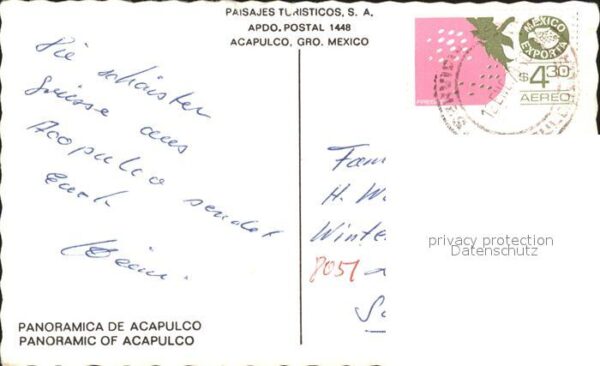 PAISAJES TURISTICOS, S. A.
APDO. POSTAL 1448
ACAPULCO, GRO. MEXICO
MEXICO
EXPORTA
$4.30
AEREO
Die schönsten
Grüsse aus
Acapulco sendet
Euch
Fam
H. W
Winte
8051
privacy protection
Datenschutz
PANORAMICA DE ACAPULCO
PANORAMIC OF ACAPULCO